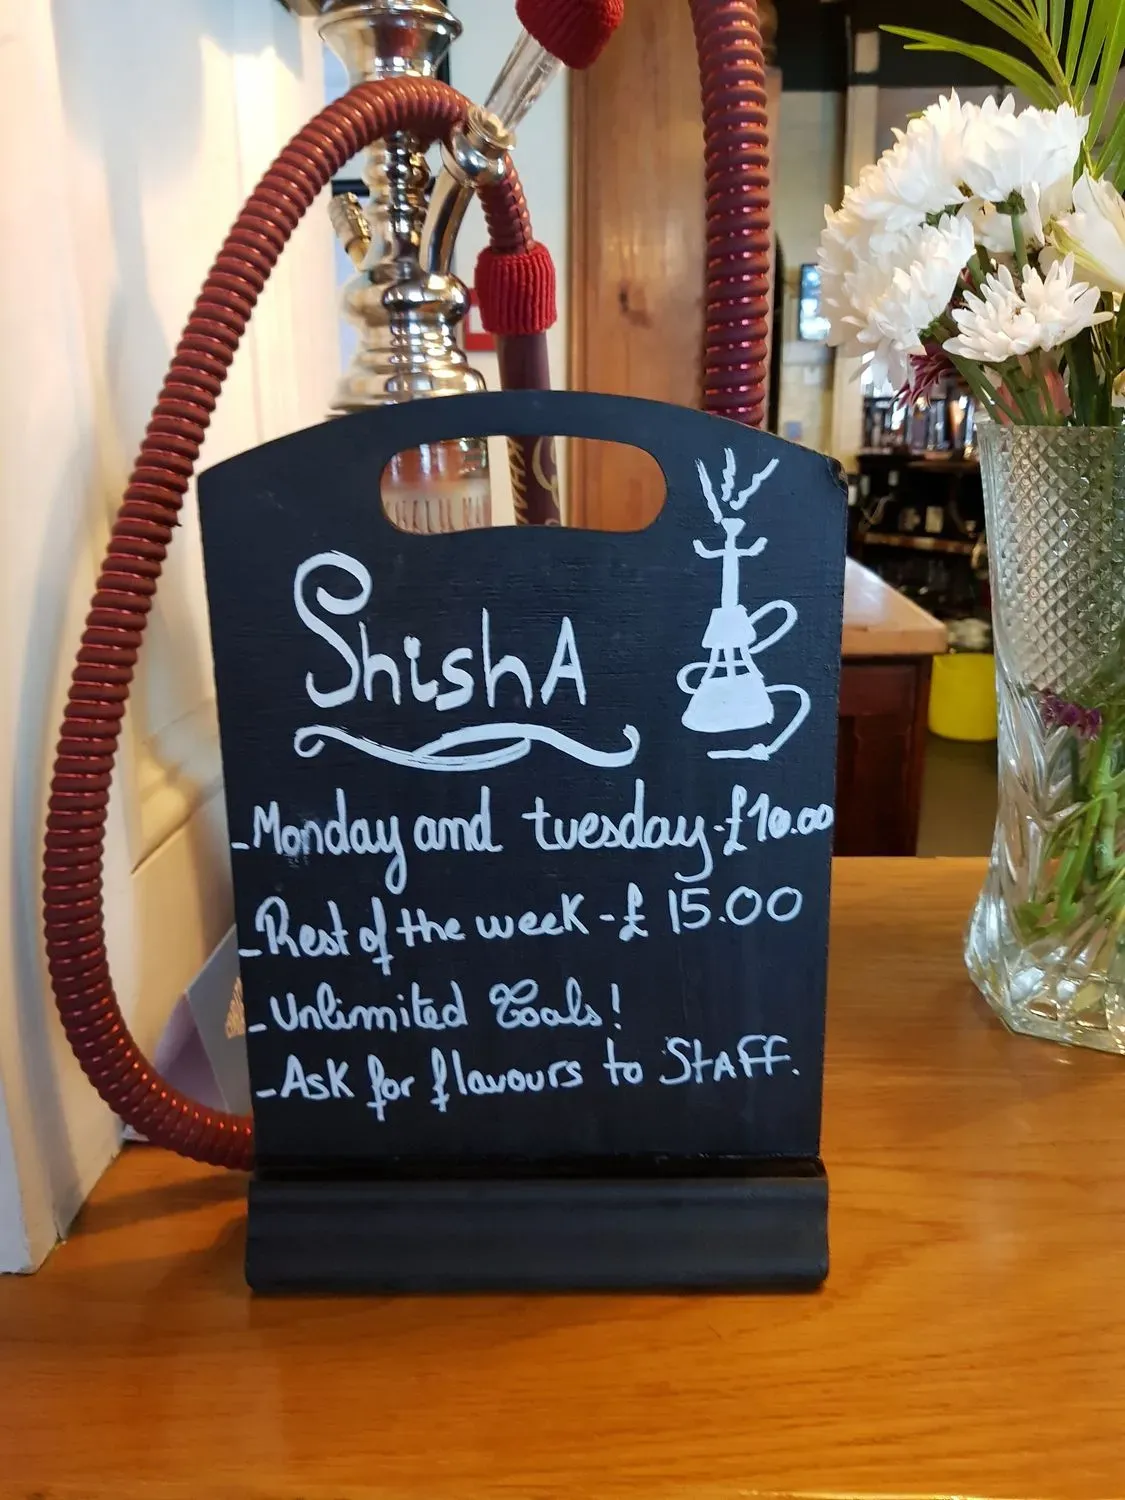 ShishA
- Monday and tuesday - £10.00
- Rest of the week - £ 15.00
- Unlimited Coals!
- Ask for flavours to StAFF.